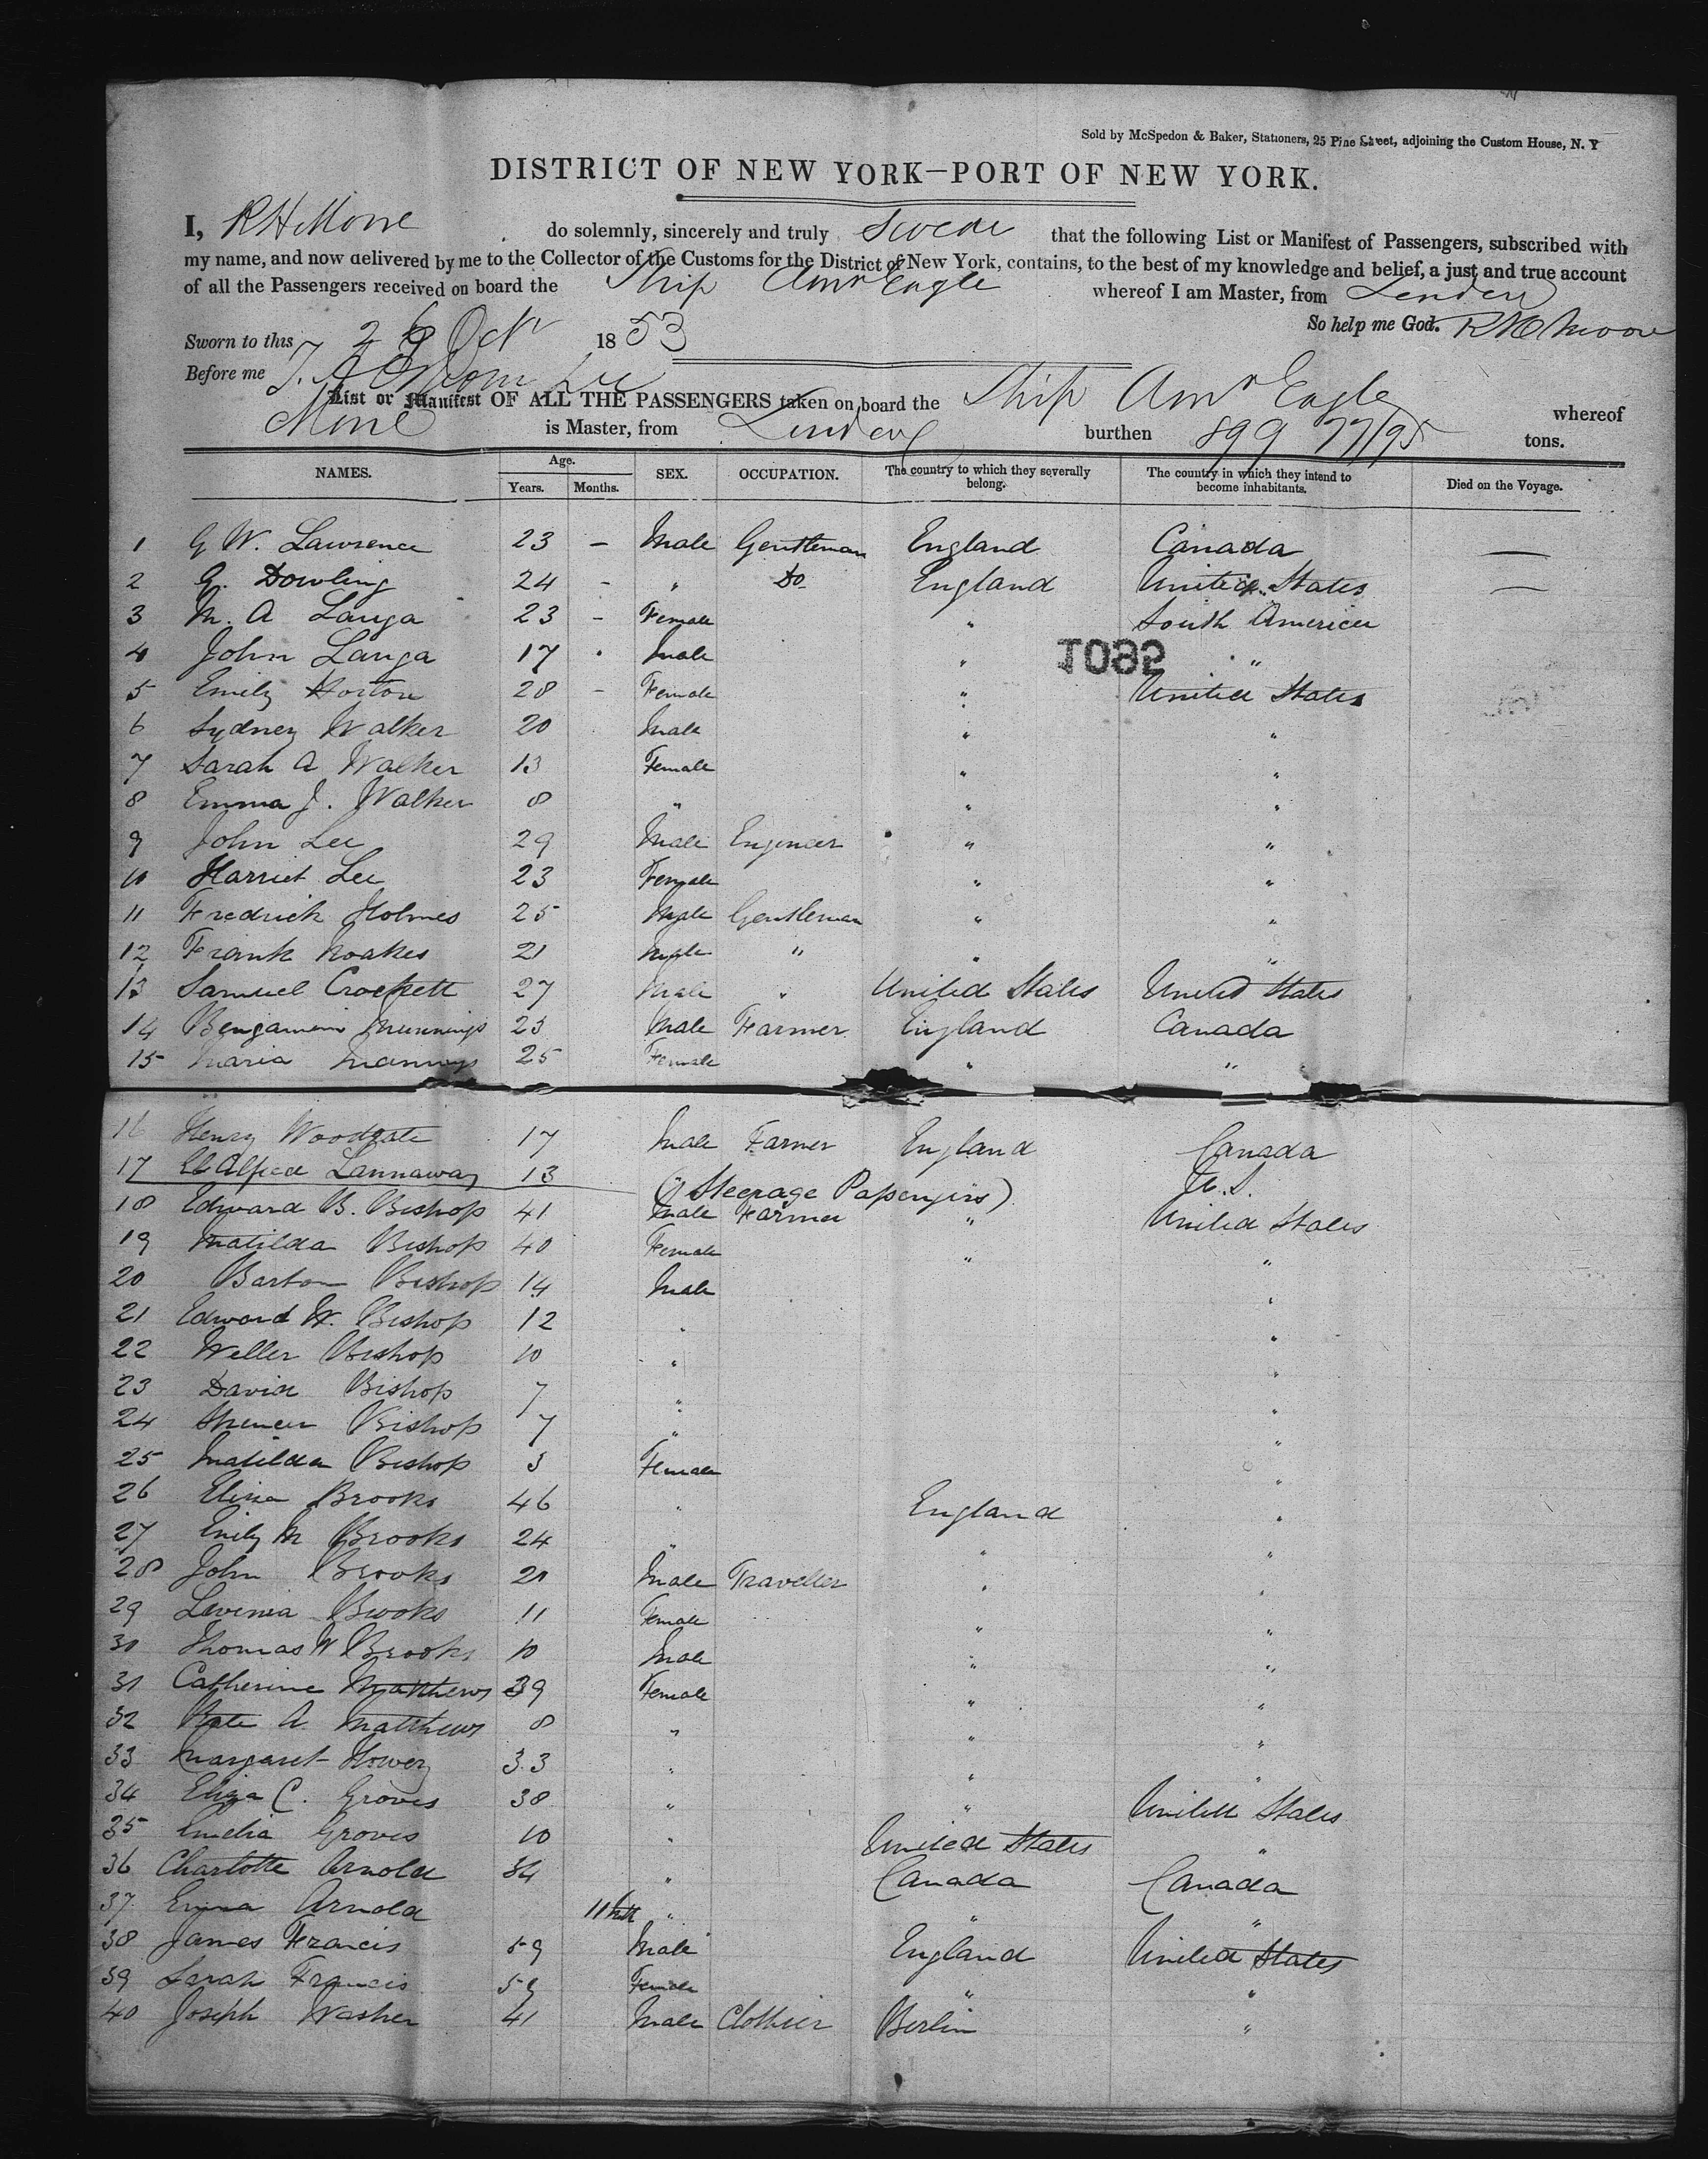 Sold by McSpedon & Baker, Stationers, 25 Pine Street, adjoining the Custom House, N. Y
DISTRICT OF NEW YORK—PORT OF NEW YORK.
I, R H Moore do solemnly, sincerely and truly Swear that the following List or Manifest of Passengers, subscribed with
my name, and now delivered by me to the Collector of the Customs for the District of New York, contains, to the best of my knowledge and belief, a just and true account
of all the Passengers received on board the Ship Amn Eagle whereof I am Master, from London
So help me God. R H Moore
Sworn to this 26 Oct 1853
Before me
List or Manifest OF ALL THE PASSENGERS taken on board the Ship Amn Eagle whereof
Moore is Master, from London burthen 899 77/95 tons.
NAMES. Age. Years. Months. SEX. OCCUPATION. The country to which they severally belong. The country in which they intend to become inhabitants. Died on the Voyage.
1 G W. Lawrence 23 – Male Gentleman England Canada —
2 G. Dowling 24 – " Do England United States —
3 M. A Langa 23 – Female " South America
4 John Langa 17 Male " "
1085
5 Emily Horton 28 – Female " United States
6 Sydney Walker 20 Male " "
7 Sarah A Walker 13 Female " "
8 Emma J. Walker 8 " " "
9 John Lee 29 Male Engineer " "
10 Harriet Lee 23 Female " "
11 Fredrick Holmes 25 Male Gentleman " "
12 Frank Noakes 21 Male " " "
13 Samuel Crockett 27 Male " United States United States
14 Bengamin Munnings 23 Male Farmer England Canada
15 Maria Mannings 25 Female " "
16 Henry Woodgate 17 Male Farmer England Canada
17 Alfred Lannaway 13 " U.S.
(Steerage Passengers)
18 Edward B. Bishop 41 Male Farmer " United States
19 Matilda Bishop 40 Female " "
20 Barton Bishop 14 Male "
21 Edward W. Bishop 12 " "
22 Weller Bishop 10 " "
23 David Bishop 7 " "
24 Spencer Bishop 7 " "
25 Matilda Bishop 3 Female "
26 Eliza Brooks 46 " England "
27 Emily M Brooks 24 " " "
28 John Brooks 21 Male Traveller " "
29 Lavinia Brooks 11 Female " "
30 Thomas W Brooks 10 Male " "
31 Catherine Matthews 39 Female " "
32 Kate A. Matthews 8 " " "
33 Margaret Hower 33 " " "
34 Eliza C. Groves 38 " " United States
35 Emelia Groves 10 " United States "
36 Charlotte Arnold 34 " Canada Canada
37 Emma Arnold 11 Mth " " "
38 James Francis 59 Male England United States
39 Sarah Francis 59 Female " "
40 Joseph Washer 41 Male Clothier Berlin "